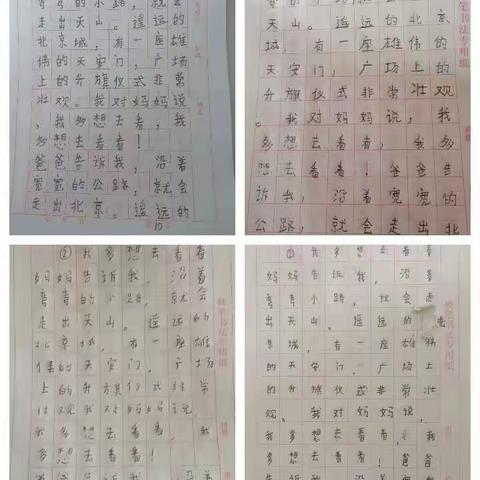 弯弯的小路，就会
走出天山。遥远的
北京城，有一座雄
伟的天安门，广场
上的升旗仪式非常
壮观。我对妈妈说
，我多想去看看，我
多想去看看！
爸爸告诉我，沿着
宽宽的公路，就会
走出北京。遥远的
10
天山。遥远的北京
城，有一座雄伟的
天安门，广场上的
升旗仪式非常壮观
。我对妈妈说，我
多想去看看，我多
想去看看！爸爸告
诉我，沿着宽宽的
公路，就会走出北
笔书法专用纸
②我多想去看看
妈妈告诉我，沿着
弯弯的小路，就会
走出天山。遥远的
北京城，有一座雄
伟的天安门，广场
上的升旗仪式非常
壮观我对妈妈说，
我多想去看看，我
多想去看看！
爸爸告诉我，沿着
②我多想去看看
妈妈告诉我，沿着
弯弯小路，就会走
出天山。遥远的
京城，有一座雄伟
的天安门，广场上
的升旗仪式非常壮
观。我对妈妈说，
我多想去看看，我
多想去看看！爸爸
告诉我，沿着宽宽
硬笔书法专用纸